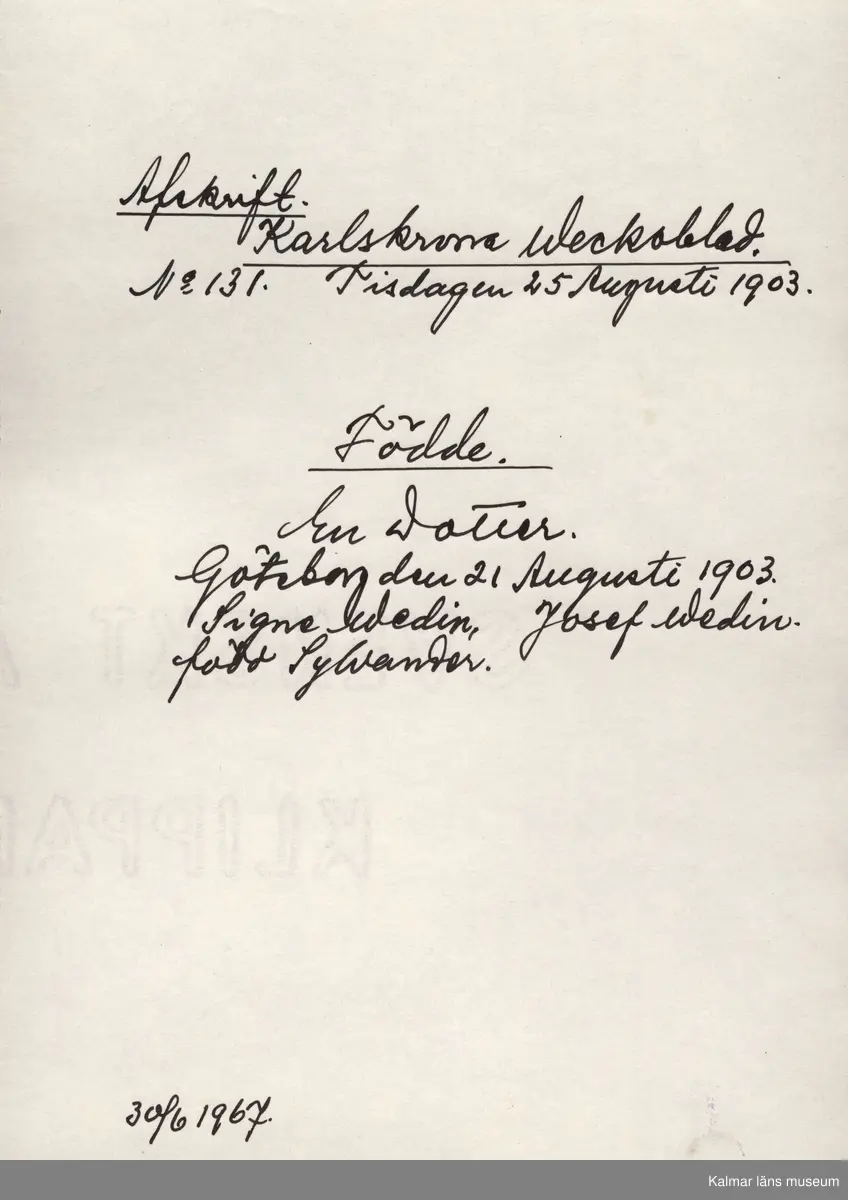 Afskrift.
Karlskrona Weckoblad.
No 131. Tisdagen 25 Augusti 1903.
Födde.
En Dotter.
Göteborg den 21 Augusti 1903.
Signe Wedin, Josef Wedin.
född Sylvander.
KLIPPA
30/6 1967.
Kalmar läns museum